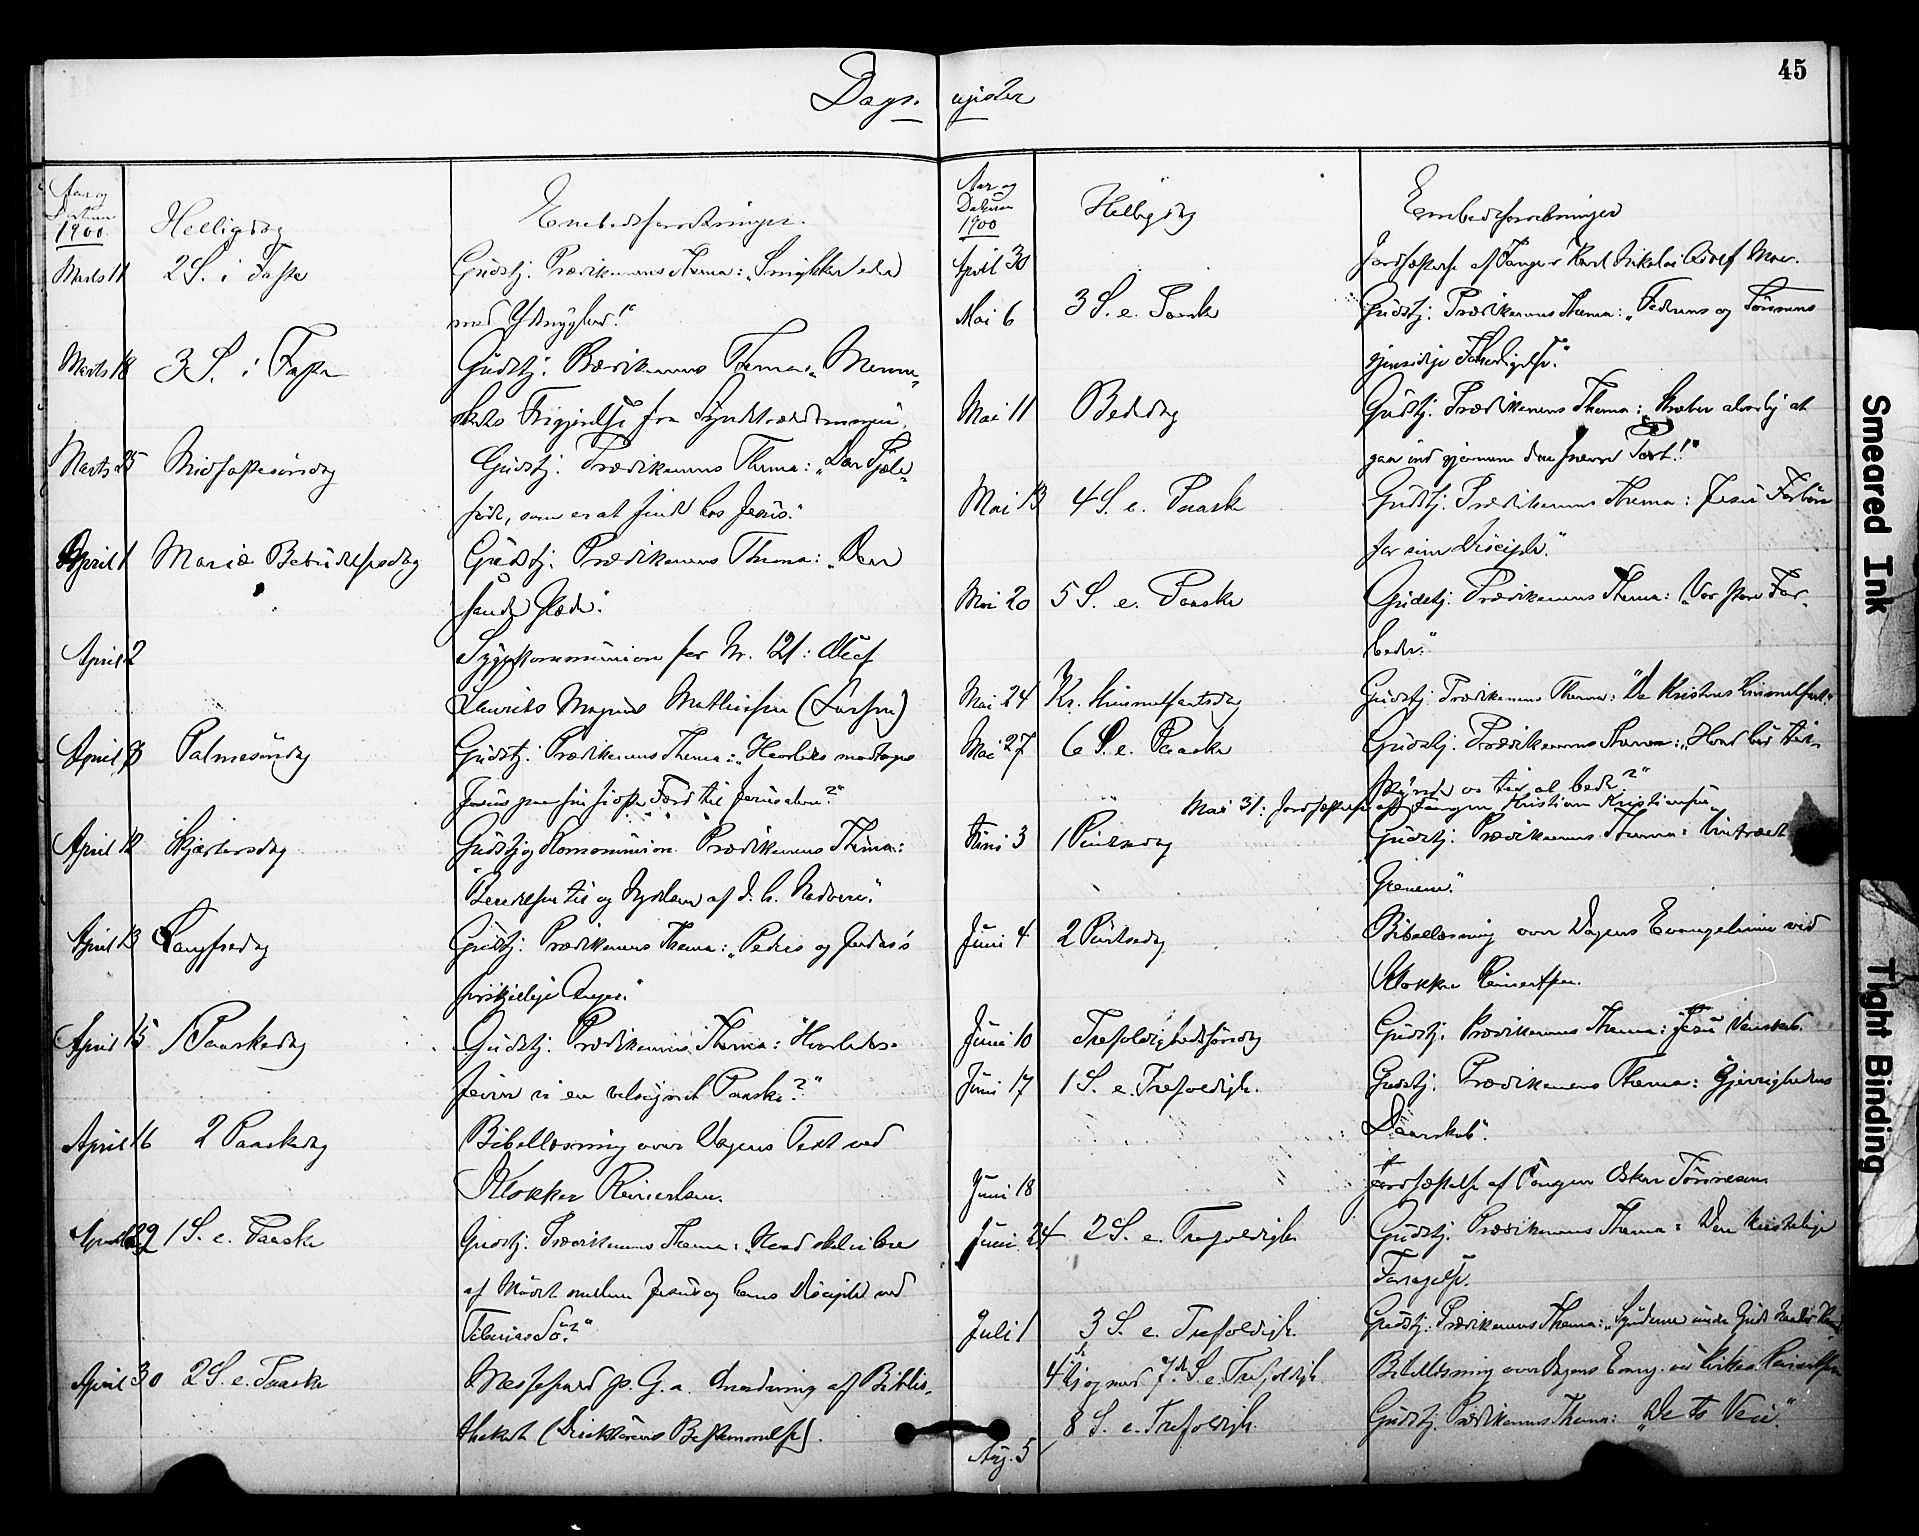 45
Dagsregister
Aar og Datum 1900.
Helligdag
Embedsforretninger.
Marts 11 2 S. i Faste Gudstj. Prædikenens Thema: „Smykker eder
med Ydmyghed!"
Marts 18 3 S. i Faste Gudstj. Prædikenens Thema: „Menne-
skets Frigjørelse fra Syndetrældommen.
Marts 25 Midfastesøndag Gudstj. Prædikenens Thema: „Den Sjæle-
føde, som er at finde hos Jesus."
April 1 Mariæ Bebudelsesdag Gudstj. Prædikenens Thema: „Den
sande Glæde".
April 2 Sygekommunion for Nr. 121: Oluf
Laurits Magnus Mathisen (Larsen)
April 8 Palmesøndag Gudstj. Prædikenens Thema: „Hvorledes modtages
Jesus paa sin sidste Færd til Jerusalem?"
April 12 Skjærtorsdag Gudstj. og Kommunion. Prædikenens Thema:
"Beredelsen til og Nydelsen af d. h. Nadvere".
April 13 Langfredag Gudstj. Prædikenens Thema: „Peders og Judas's
forskjellige Anger."
April 15 1 Paaskedag Gudstj. Prædikenens Thema: "Hvorledes
feirer vi en velsignet Paaske?"
April 16 2 Paaskedag Bibellæsning over Dagens Text ved
Klokker Reinertsen.
April 22 1 S. e. Paaske Gudstj. Prædikenens Thema: „Hvad skal vi lære
af Mødet mellem Jesus og hans Disciple ved
Tiberias Sø?"
April 30 2 S. e. Paaske Messefald p. G. a. Anordning af Biblio-
theket (Direktørens Bestemmelse).
Aar og Datum 1900
Helligdag
Embedsforretninger
April 30 Jordfæstelse af Fange Karl Nikolai Adolf Moe.
Mai 6 3 S. e. Paaske Gudstj. Prædikenens Thema: „Faderens og Sønnens
gjensidige Herliggjørelse".
Mai 11 Bededag Gudstj. Prædikenens Thema: Stræber alvorlig at
gaa ind gjennem den snevre Port!"
Mai 13 4 S. e. Paaske Gudstj. Prædikenens Thema: Jesu Forbøn
for sine Disciple".
Mai 20 5 S. e. Paaske Gudstj. Prædikenens Thema: „Vor store For-
beder"
Mai 24 Kr. Himmelfartsdag Gudstj. Prædikenens Thema: "De Kristnes Himmelfart".
Mai 27 6 S. e. Paaske Gudstj. Prædikenens Thema: „Hvad bør til-
skynde os til at bede?"
Mai 31: Jordfæstelse af Fangen Kristian Kristiansen
Juni 3 1 Pintsedag Gudstj. Prædikenens Thema: Vintræet
Grenene".
Juni 4 2 Pintsedag Bibellæsning over Dagens Evangelium ved
Klokker Reinertsen.
Juni 10 Trefoldighedssøndag Gudstj. Prædikenens Thema: Jesu Venskab.
Juni 17 1 S. e. Trefoldigh. Gudstj. Prædikenens Thema: Gjerrighedens
Daarskab".
Juni 18 Jordfæstelse af Fangen Oskar Tørresen
Juni 24 2 S. e. Trefoldigh. Gudstj. Prædikenens Thema: Den kristelige
Forsagelse.
Juli 1 3 S. e. Trefoldigh. Gudstj. Prædikenens Thema: „Synderne under Guds
4de til og med 7de S. e. Trefoldigh. Bibellæsning over Dagens Evang. ved Reinertsen
Aug. 5 8 S. e. Trefoldigh. Gudstj. Prædikenens Thema: „De to Veie"
Smeared Ink
Tight Binding